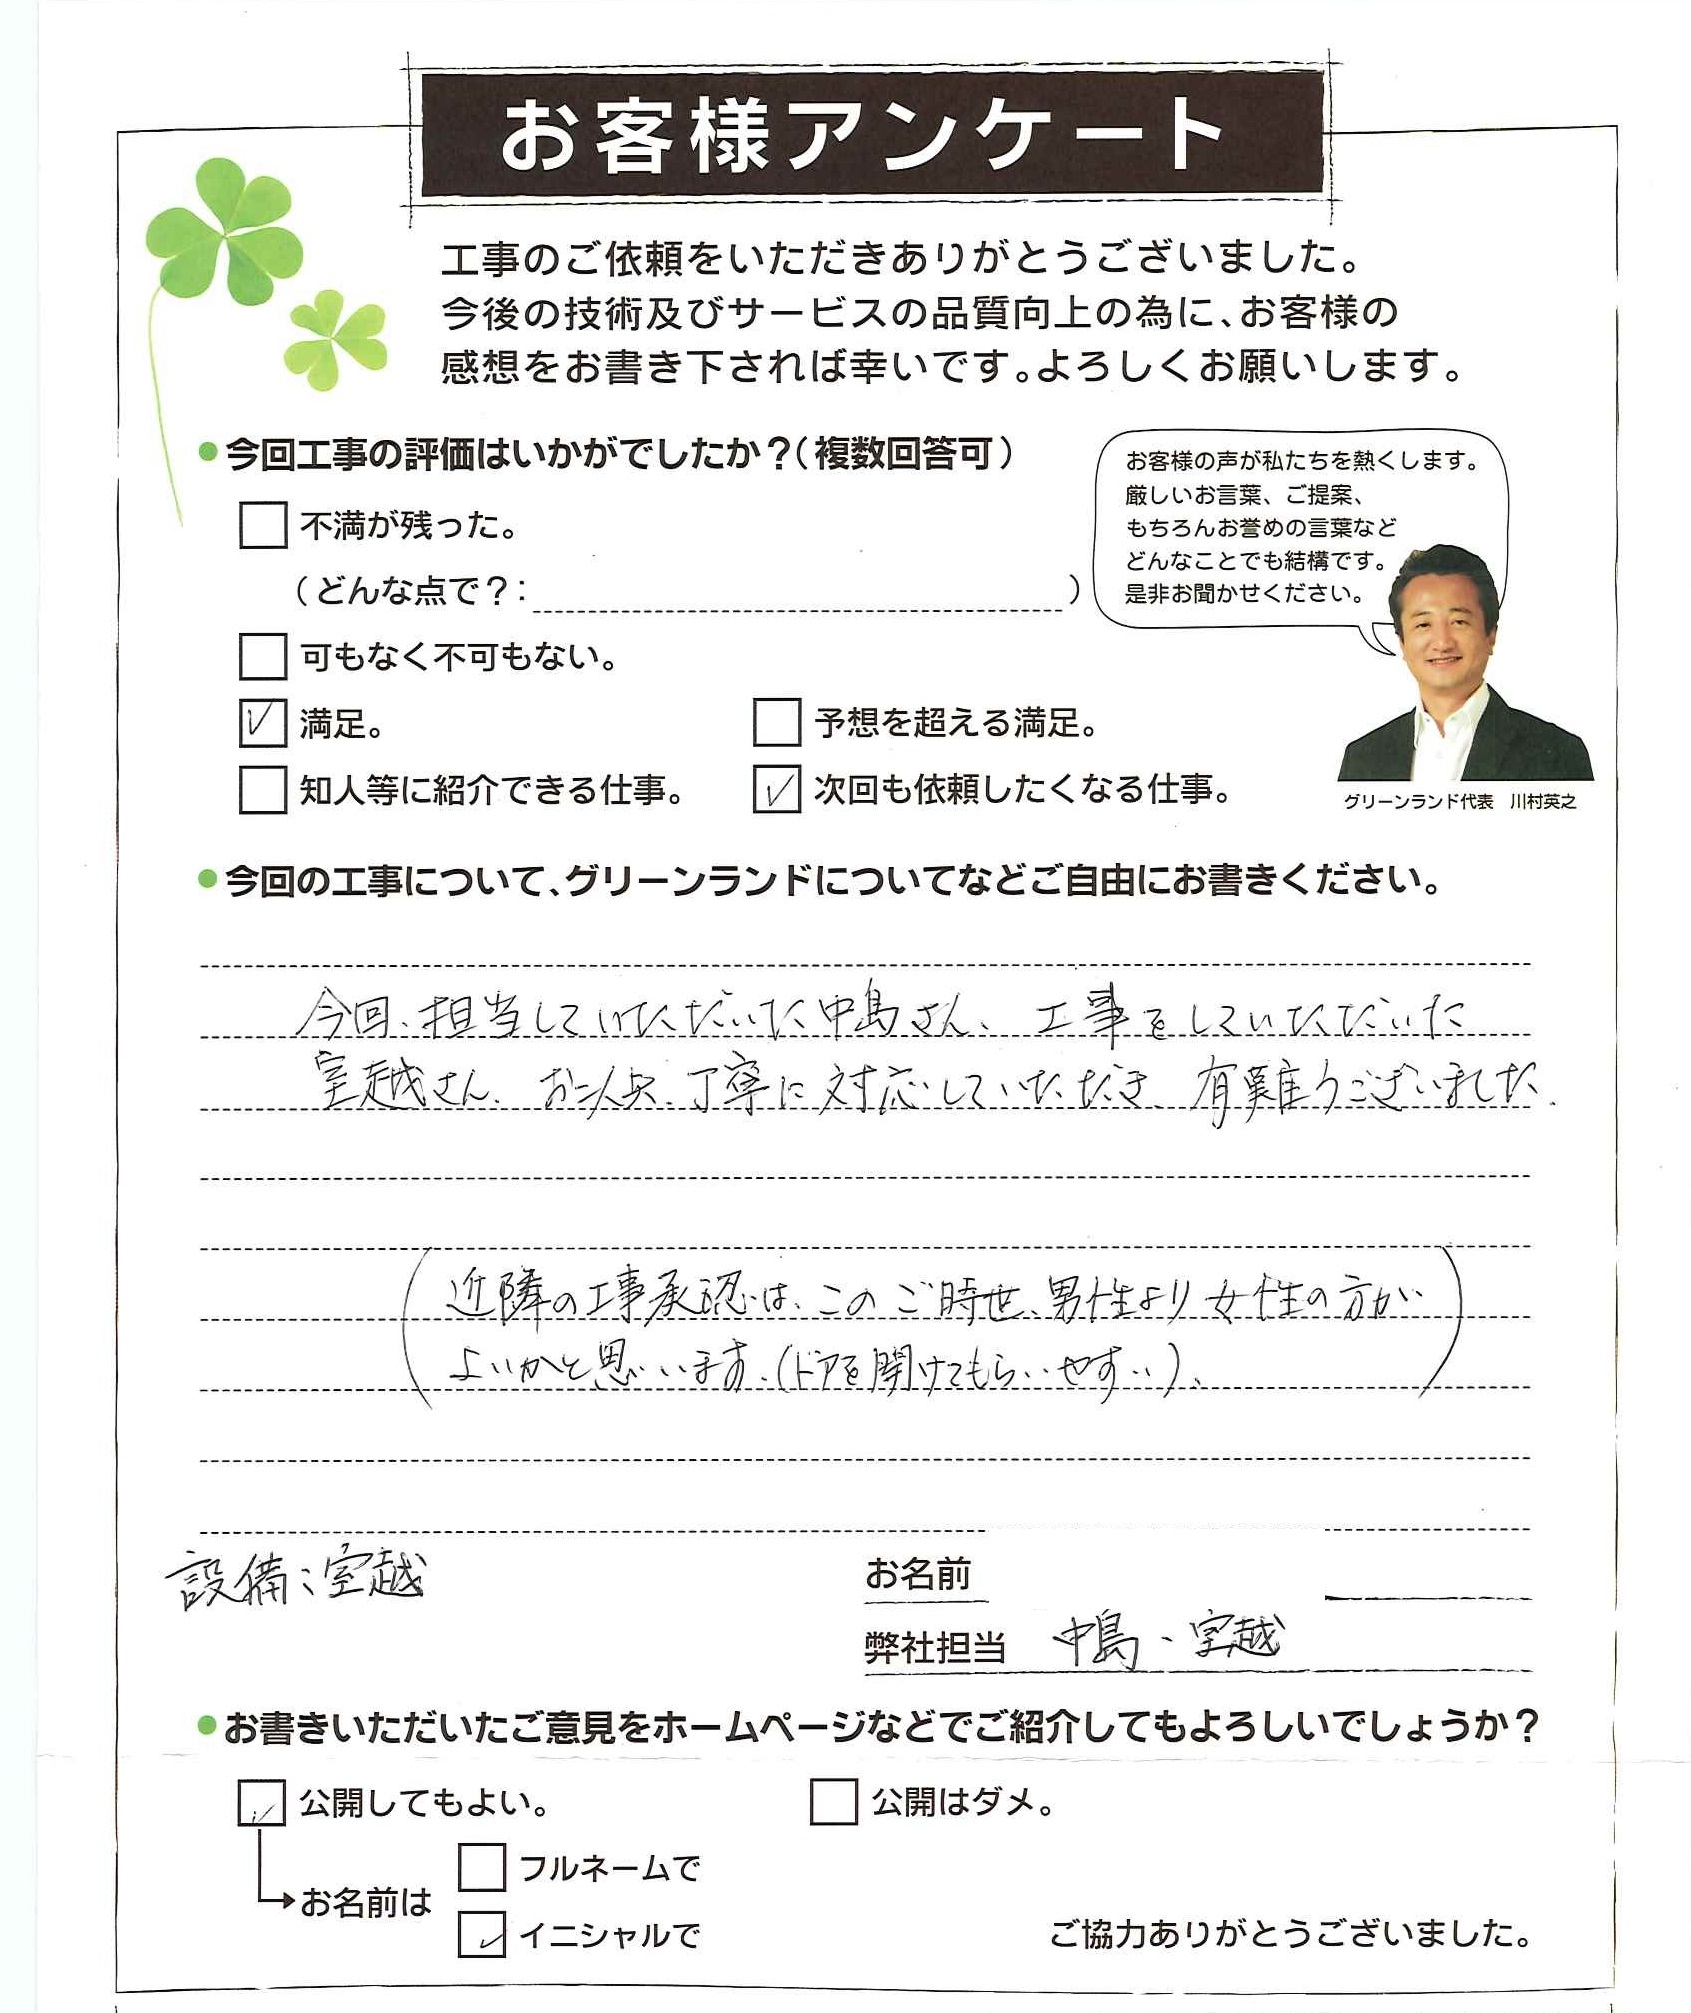 お客様アンケート
工事のご依頼をいただきありがとうございました。
今後の技術及びサービスの品質向上の為に、お客様の
感想をお書き下されば幸いです。よろしくお願いします。
●今回工事の評価はいかがでしたか？（複数回答可）
不満が残った。
（どんな点で？：　）
可もなく不可もない。
満足。
予想を超える満足。
知人等に紹介できる仕事。
次回も依頼したくなる仕事。
お客様の声が私たちを熱くします。
厳しいお言葉、ご提案、
もちろんお誉めの言葉など
どんなことでも結構です。
是非お聞かせください。
グリーンランド代表　川村英之
●今回の工事について、グリーンランドについてなどご自由にお書きください。
今回、担当していただいた中島さん、工事をしていただいた
室越さん、お二人共、丁寧に対応していただき、有難うございました。
（近隣の工事承認は、このご時世、男性より女性の方が
よいかと思います。（ドアを開けてもらいやすい）。）
設備：室越
お名前
弊社担当　中島、室越
●お書きいただいたご意見をホームページなどでご紹介してもよろしいでしょうか？
公開してもよい。
公開はダメ。
お名前は
フルネームで
イニシャルで
ご協力ありがとうございました。